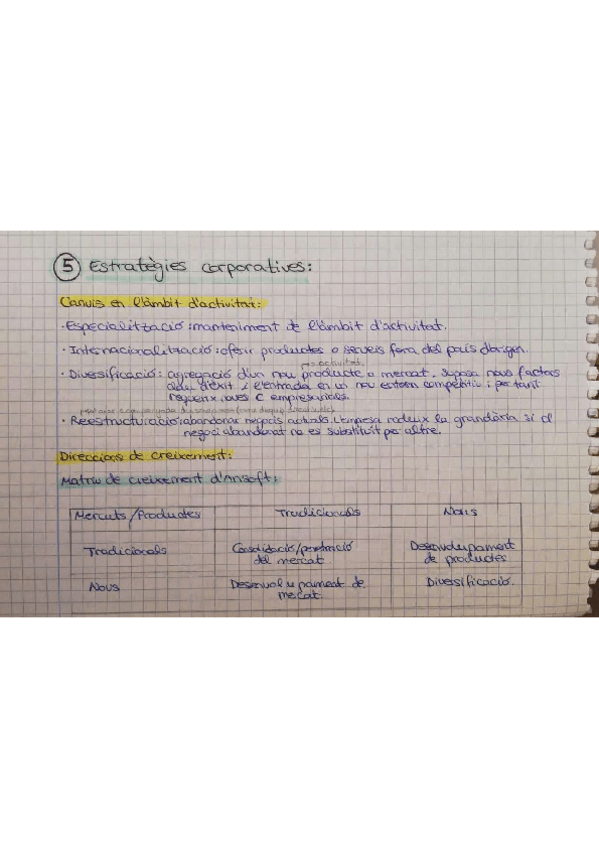 5 Estratègies corporatives:
Canvis en l'àmbit d'activitat:
· Especialització: manteniment de l'àmbit d'activitat.
· Internacionalització: oferir productes o serveis fora del país d'origen.
→ activitat.
· Diversificació: agregació d'un nou producte o mercat. Suposa nous factors
clau d'èxit i l'entrada en un nou entorn competitiu i per tant
requerix noves C empresarials.
· Reestructuració: abandonar negocis actuals. L'empresa redueix la grandària si el
negoci abandonat no es substituït per altre.
Direccions de creixement:
Matriu de creixement d'Ansoft:
Mercats/Productes Tradicionals Nous
Tradicionals Consolidació/penetració del mercat Desenvolupament de productes
Nous Desenvolupament de mercat. Diversificació.